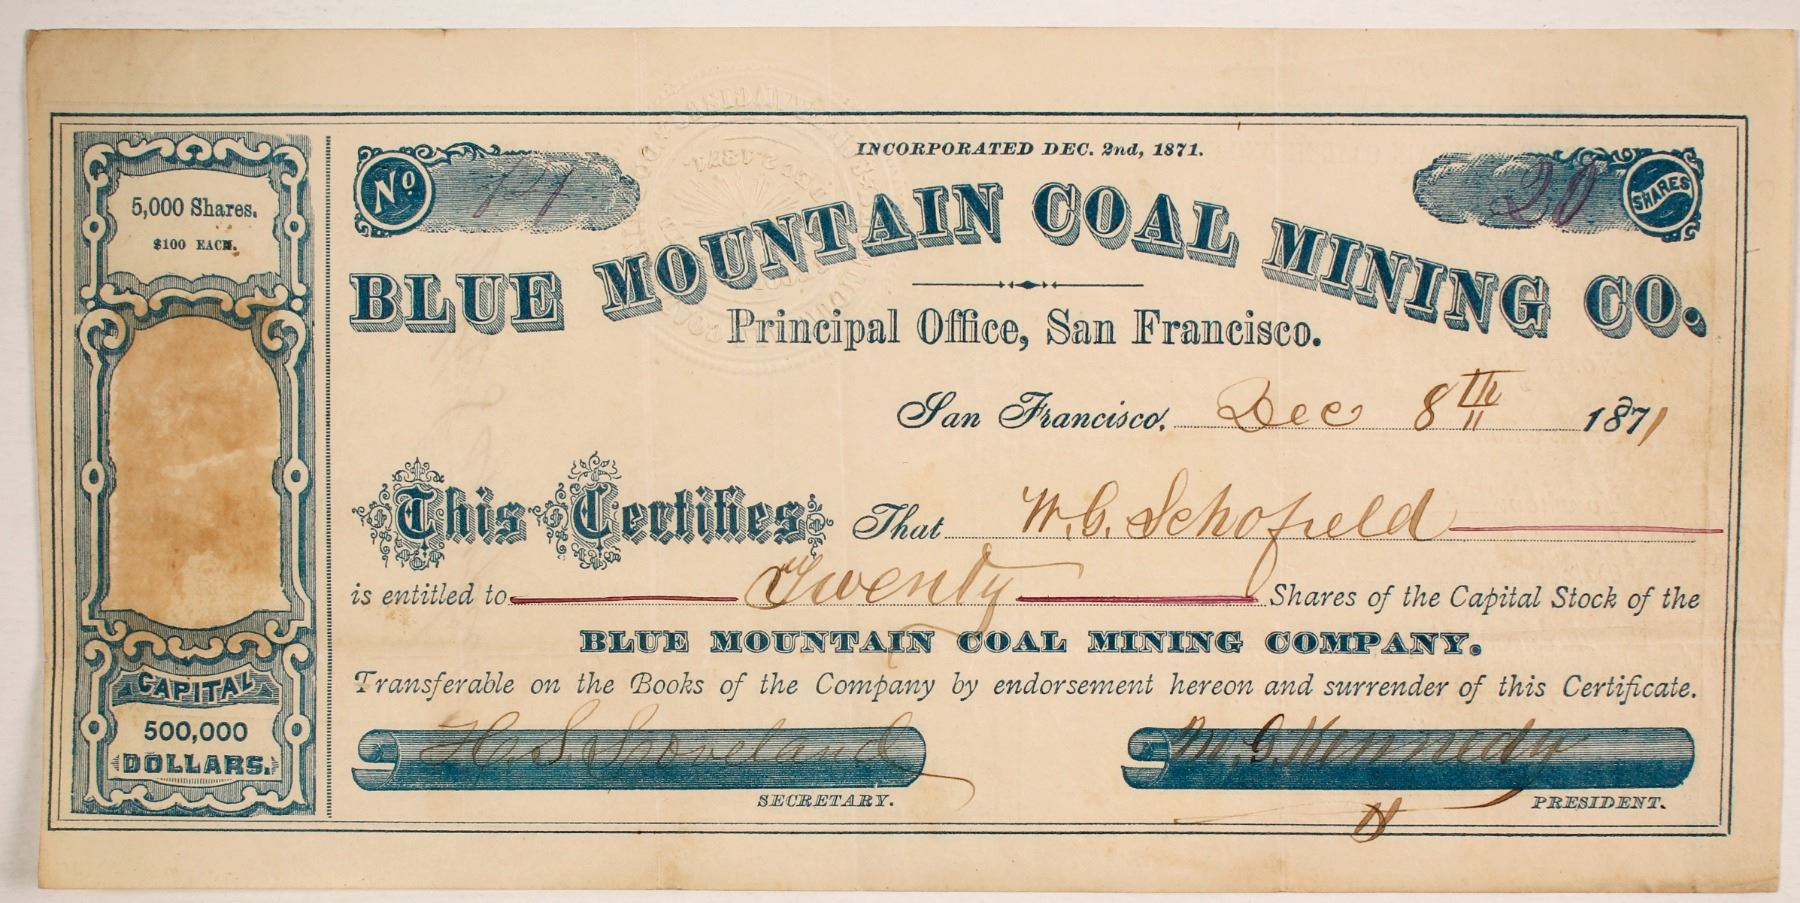 INCORPORATED DEC. 2nd, 1871.
No
20 SHARES
5,000 Shares.
$100 EACH.
BLUE MOUNTAIN COAL MINING CO.
Principal Office, San Francisco.
San Francisco, Dec 8th 1871
This Certifies That W. G. Schofield
is entitled to Twenty Shares of the Capital Stock of the
BLUE MOUNTAIN COAL MINING COMPANY.
Transferable on the Books of the Company by endorsement hereon and surrender of this Certificate.
CAPITAL
500,000
DOLLARS.
H. S. Loveland
SECRETARY.
Kennedy
PRESIDENT.